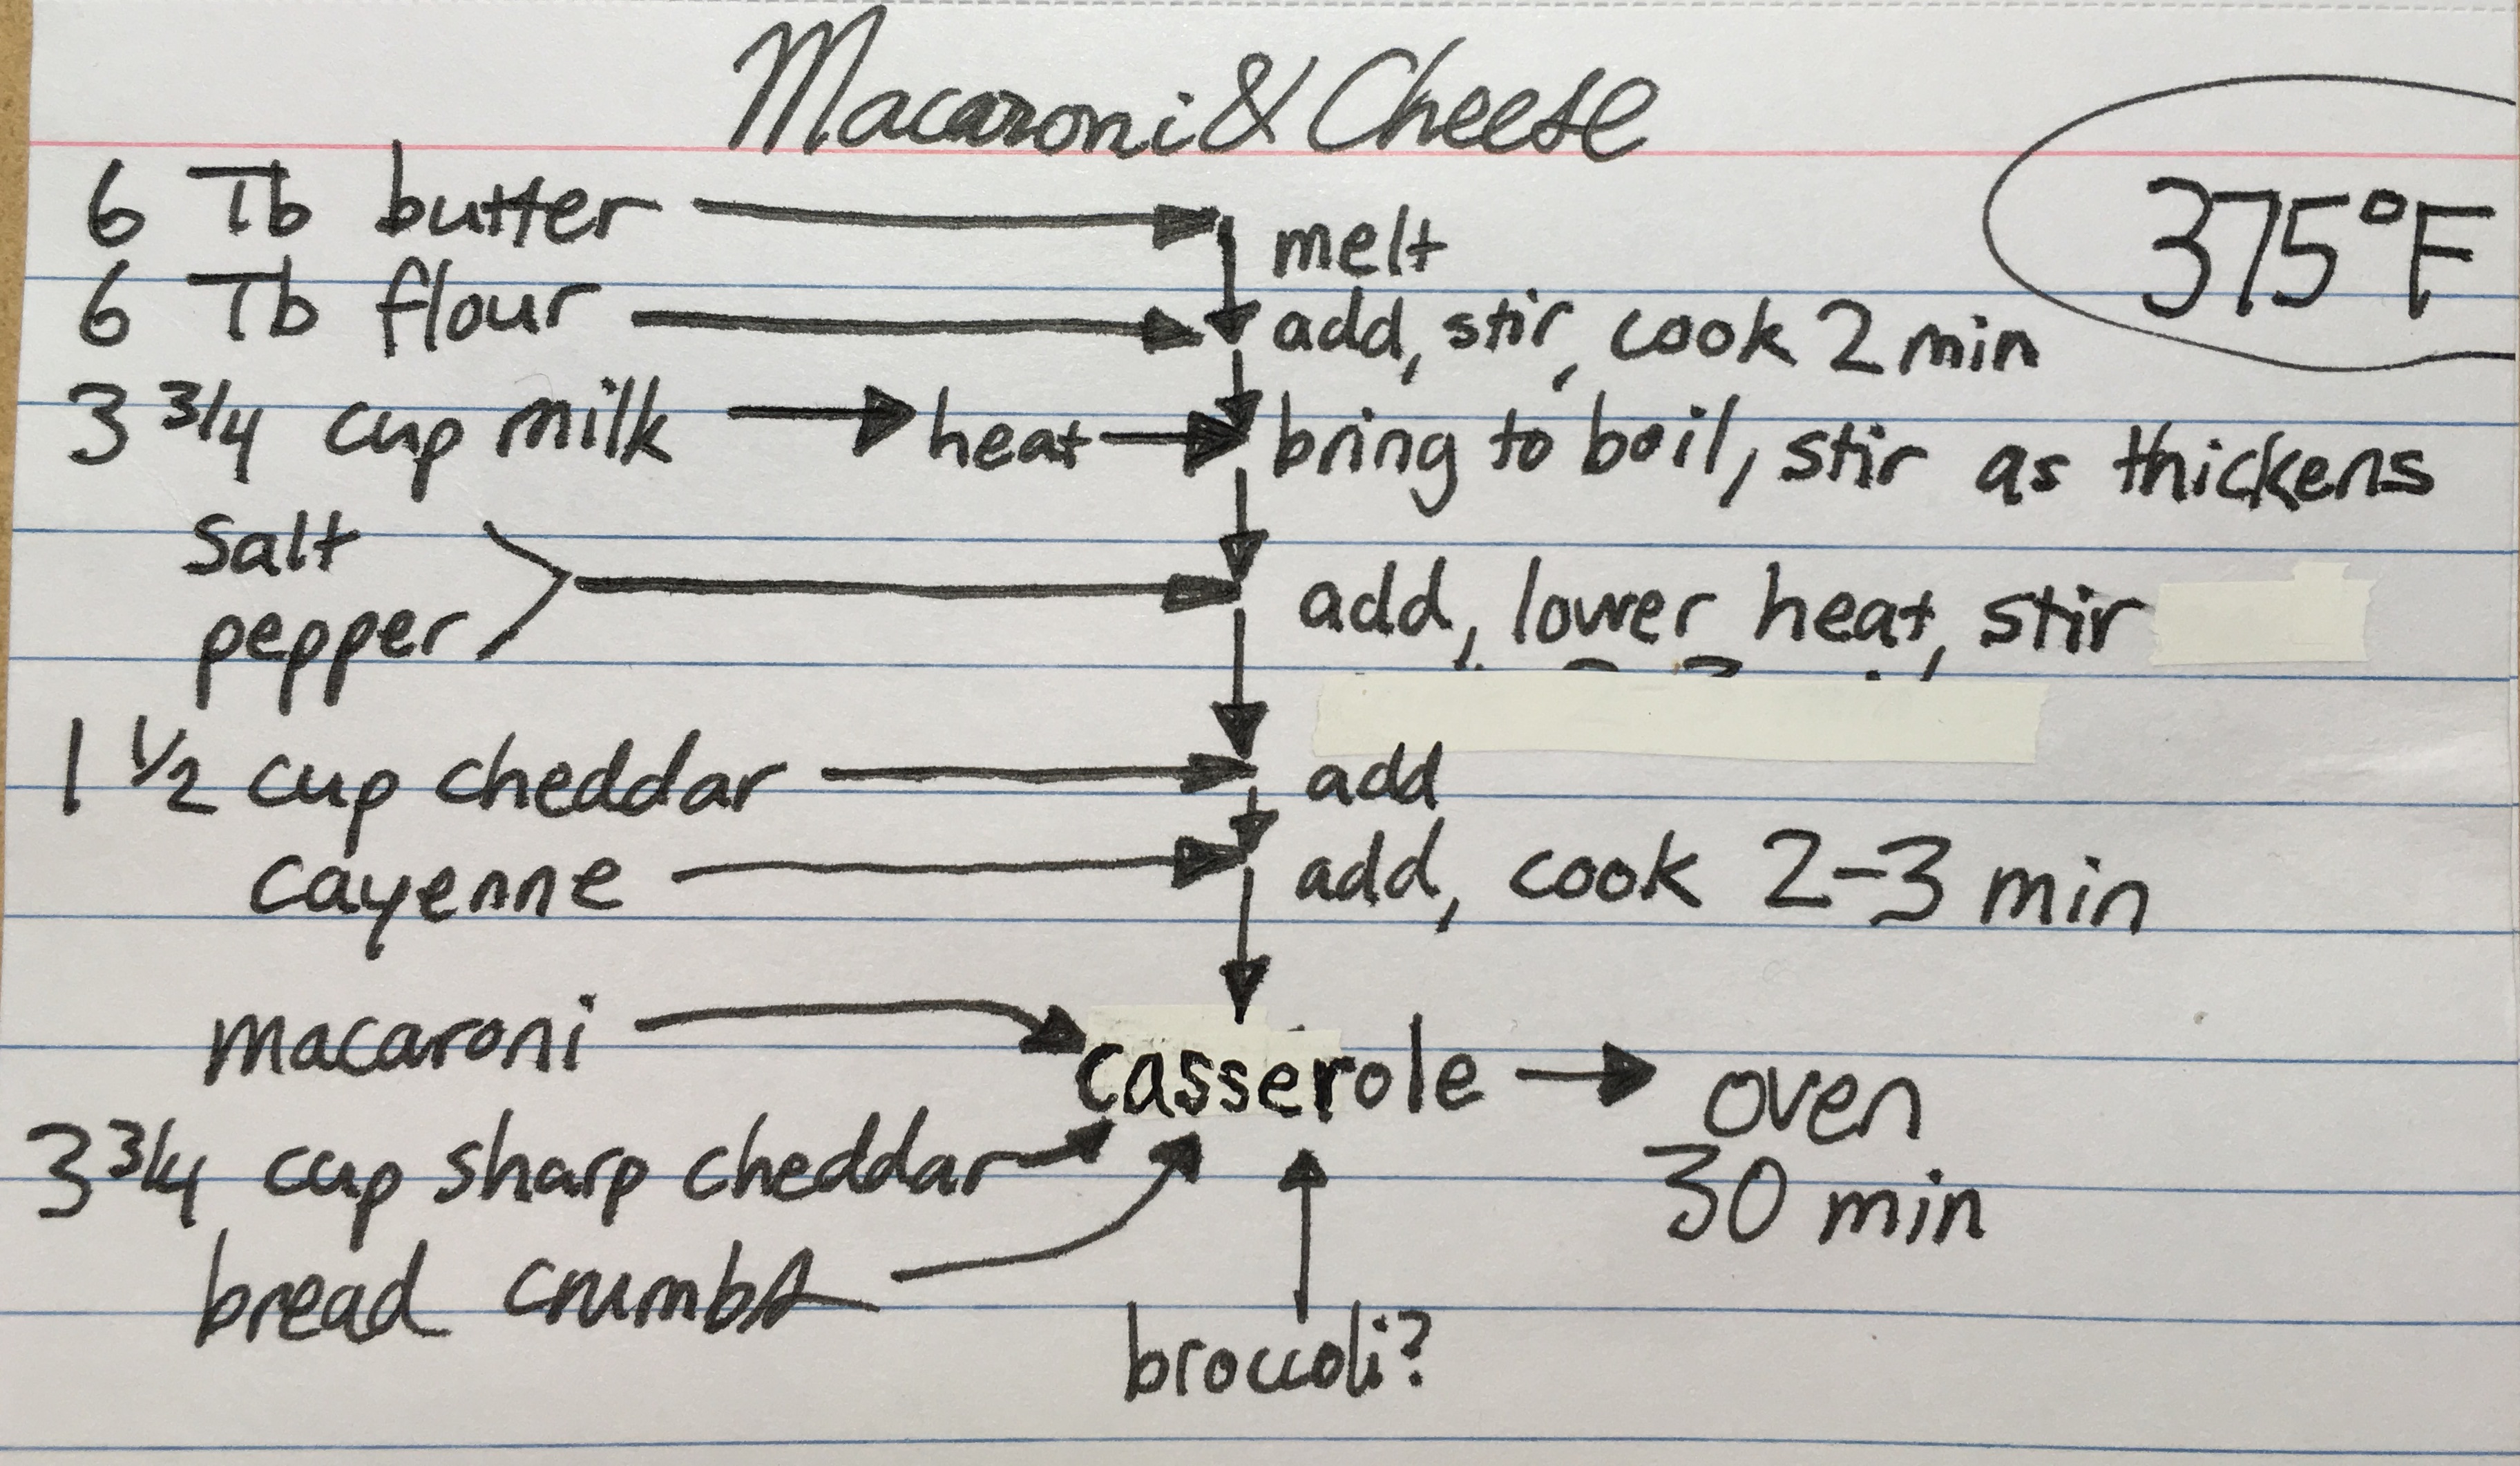 Macaroni & Cheese
375°F
6 Tb butter melt
6 Tb flour add, stir, cook 2 min
3 3/4 cup milk heat bring to boil, stir as thickens
salt
pepper
add, lower heat, stir
1 1/2 cup cheddar add
cayenne add, cook 2-3 min
macaroni
casserole oven
30 min
3 3/4 cup sharp cheddar
bread crumbs
broccoli?